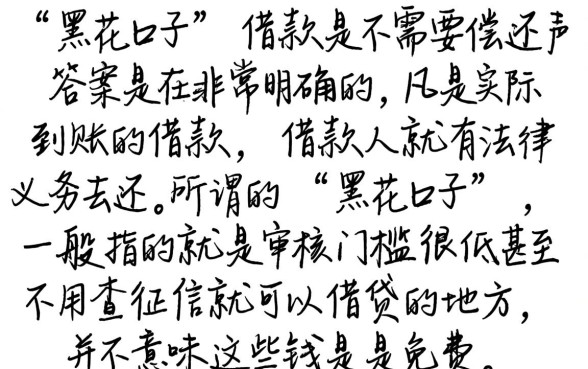 “黑花口子” 借款是不需要偿还声
答案是在非常明确的，凡是实际
到账的借款， 借款人就有法律
义务去还。所谓的 “黑花口子”，
一般指的就是审核门槛很低甚至
不用查征信就可以借贷的地方，
并不意味这些钱是是免费。